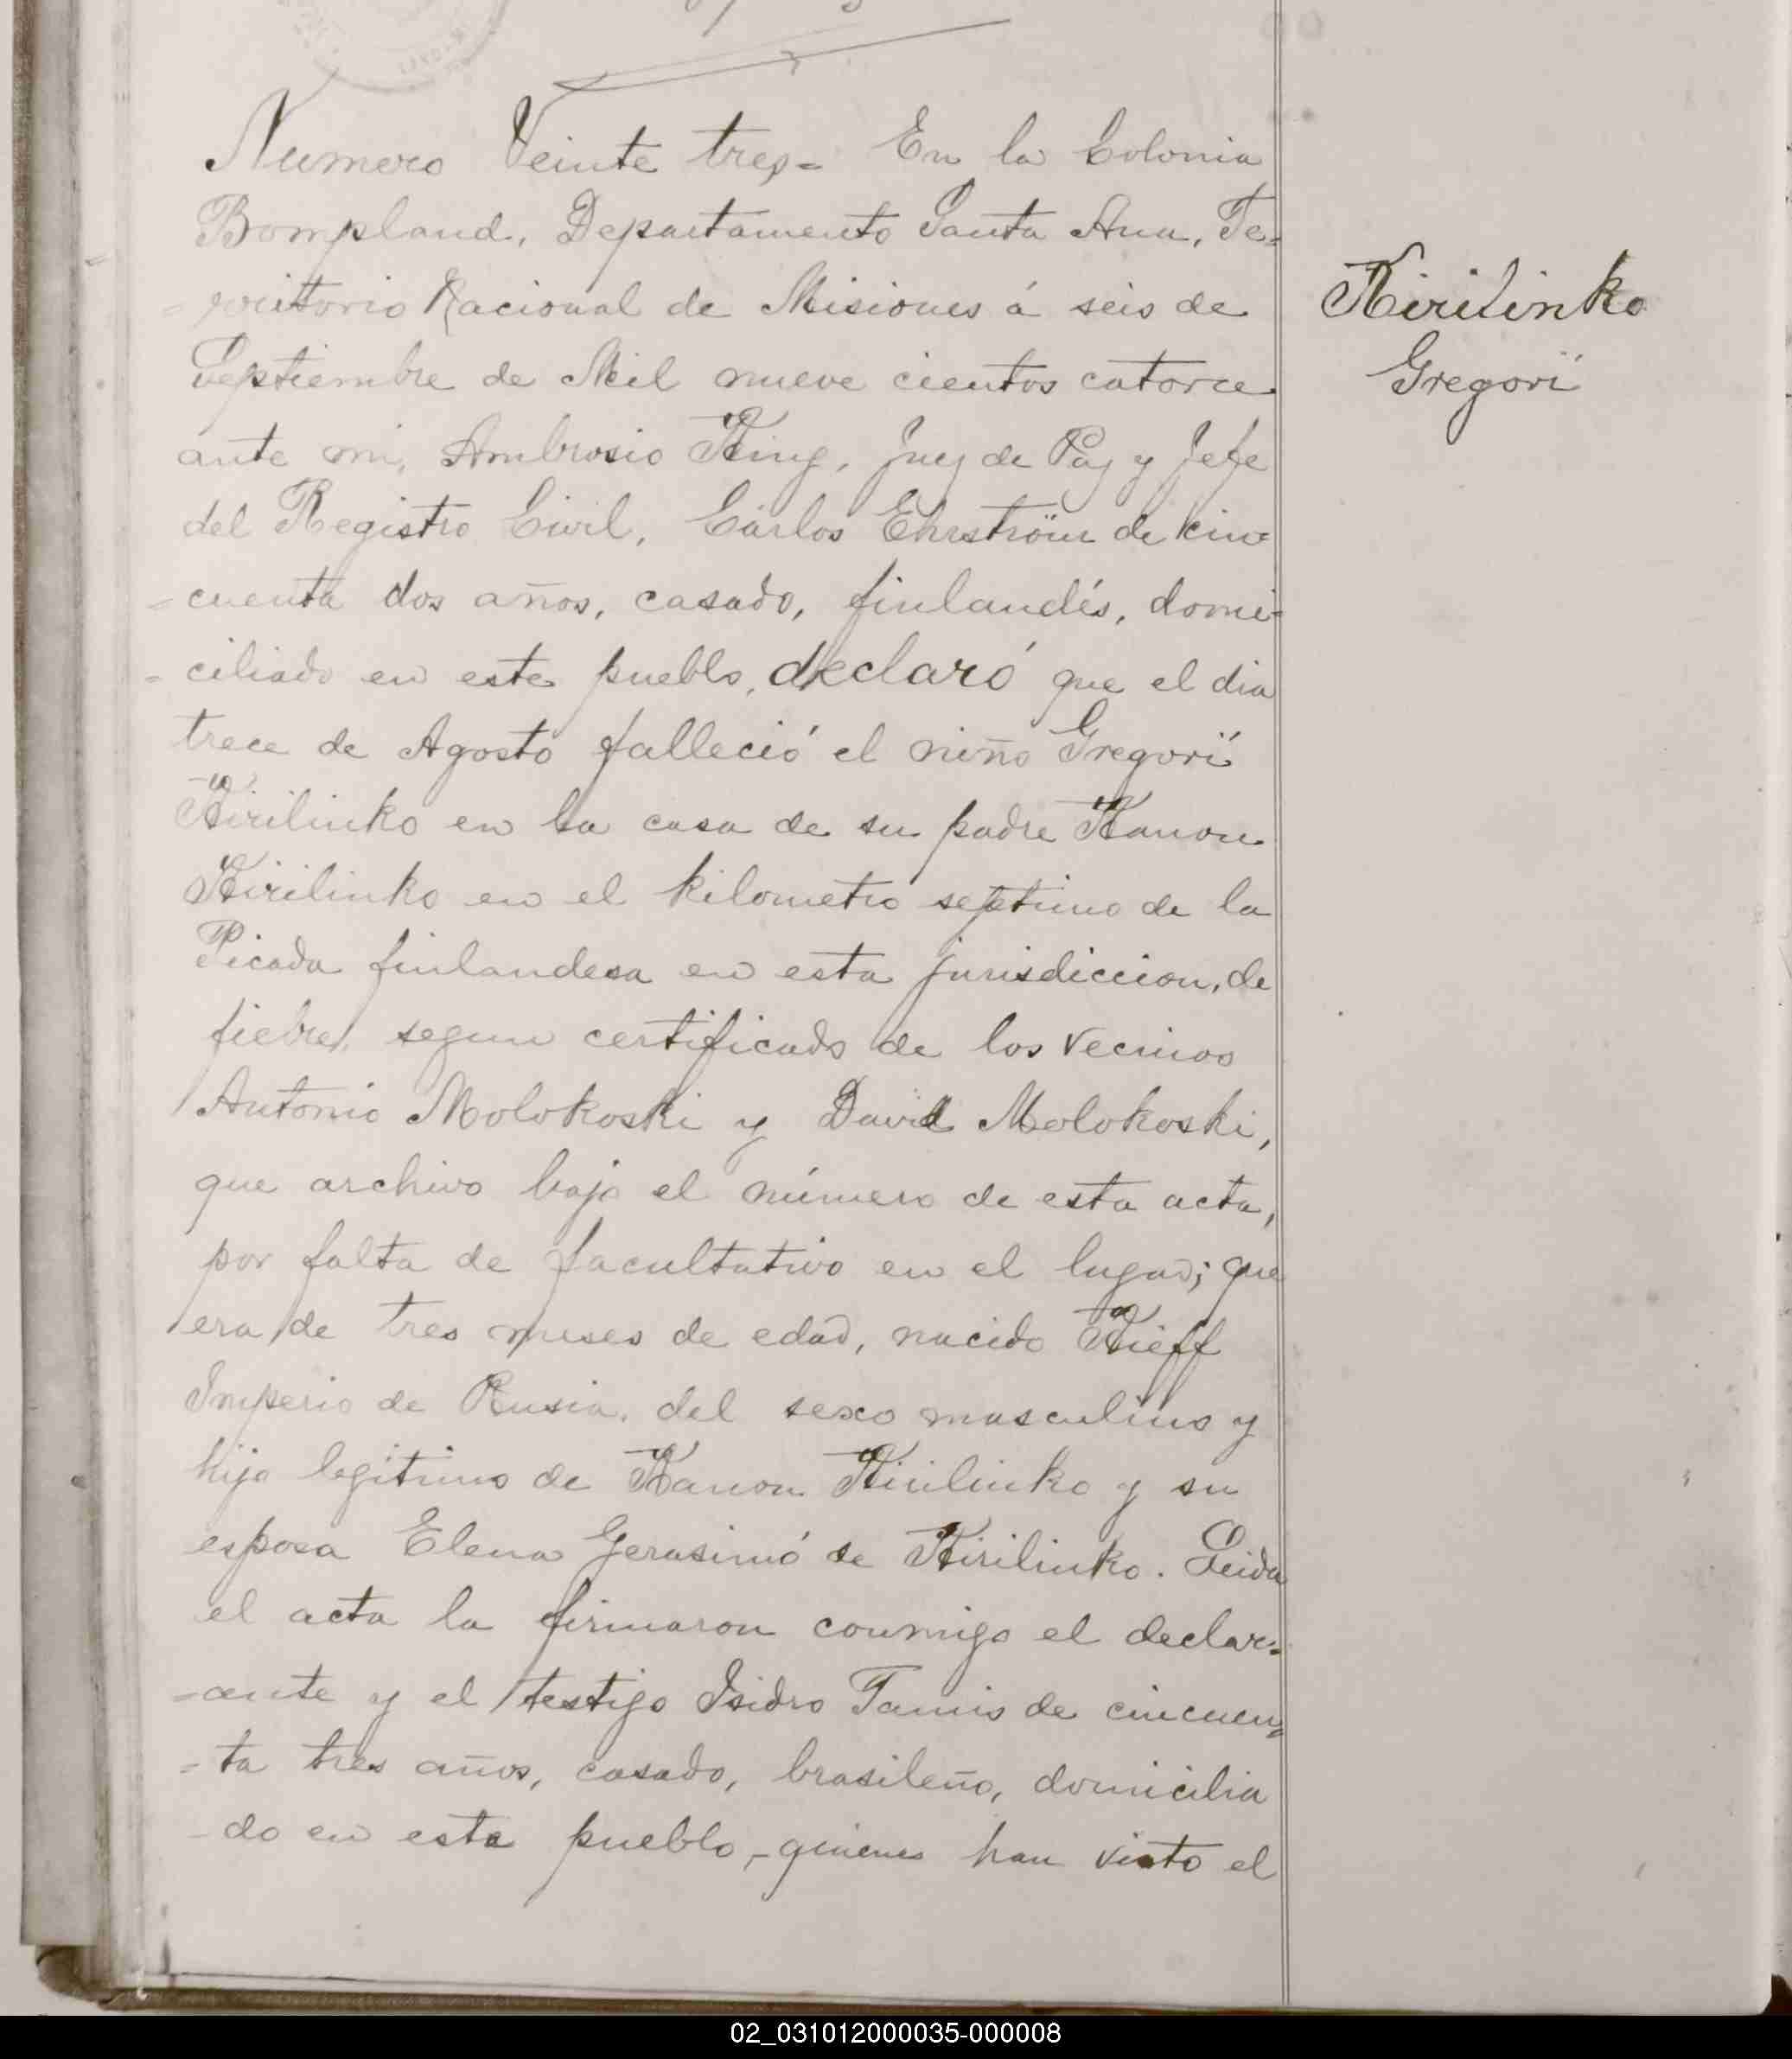 Numero Veinte tres= En la Colonia
Bompland, Departamento Santa Ana, Te=
=rritorio Nacional de Misiones á seis de
Septiembre de Mil nueve cientos catorce
ante mi, Ambrosio King, Juez de Paz y Jefe
del Registro Civil, Cárlos Ehrström de cin=
=cuenta dos años, casado, finlandés, domi=
=ciliado en este pueblo, declaró que el dia
trece de Agosto falleció el niño Gregorï
Kirilinko en la casa de su padre Kanon
Kirilinko en el kilometro septimo de la
Picada finlandesa en esta jurisdiccion, de
fiebre, segun certificado de los vecinos
Antonio Molokoski y David Molokoski,
que archivo bajo el número de esta acta,
por falta de facultativo en el lugar; que
era de tres meses de edad, nacido Kieff
Imperio de Rusia, del sexo masculino y
hijo legitimo de Kanon Kirilinko y su
esposa Elena Gerasimó de Kirilinko. Leida
el acta la firmaron conmigo el declar=
=ante y el testigo Isidro Tamis de cincuen=
=ta tres años, casado, brasileño, domicilia
-do en este pueblo,-quienes han visto el
Kirilinko
Gregorï
02_031012000035-000008